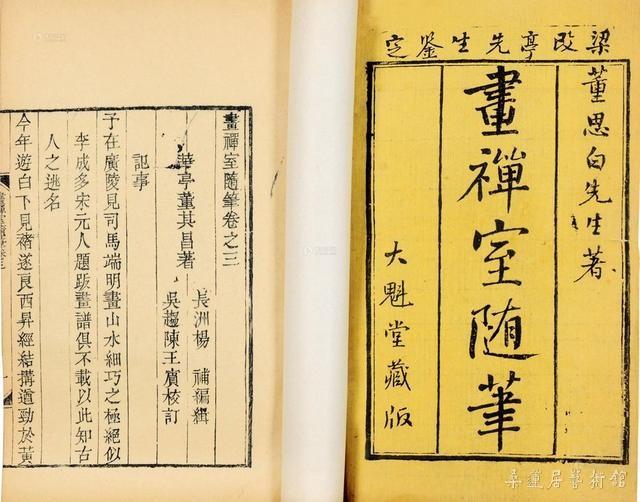 梁改亭先生鉴定
董思白先生著
畫禪室随筆
大魁堂藏版
畫禪室随筆卷之三
華亭董其昌著
長洲楊 補編輯
吳趨陳王賓校訂
記事
予在廣陵見司馬端明畫山水細巧之極絕似
李成多宋元人題跋畫譜俱不載以此知古
人之逃名
今年遊白下見褚遂良西昇經結搆遒勁於黃
桑蓮居藝術館